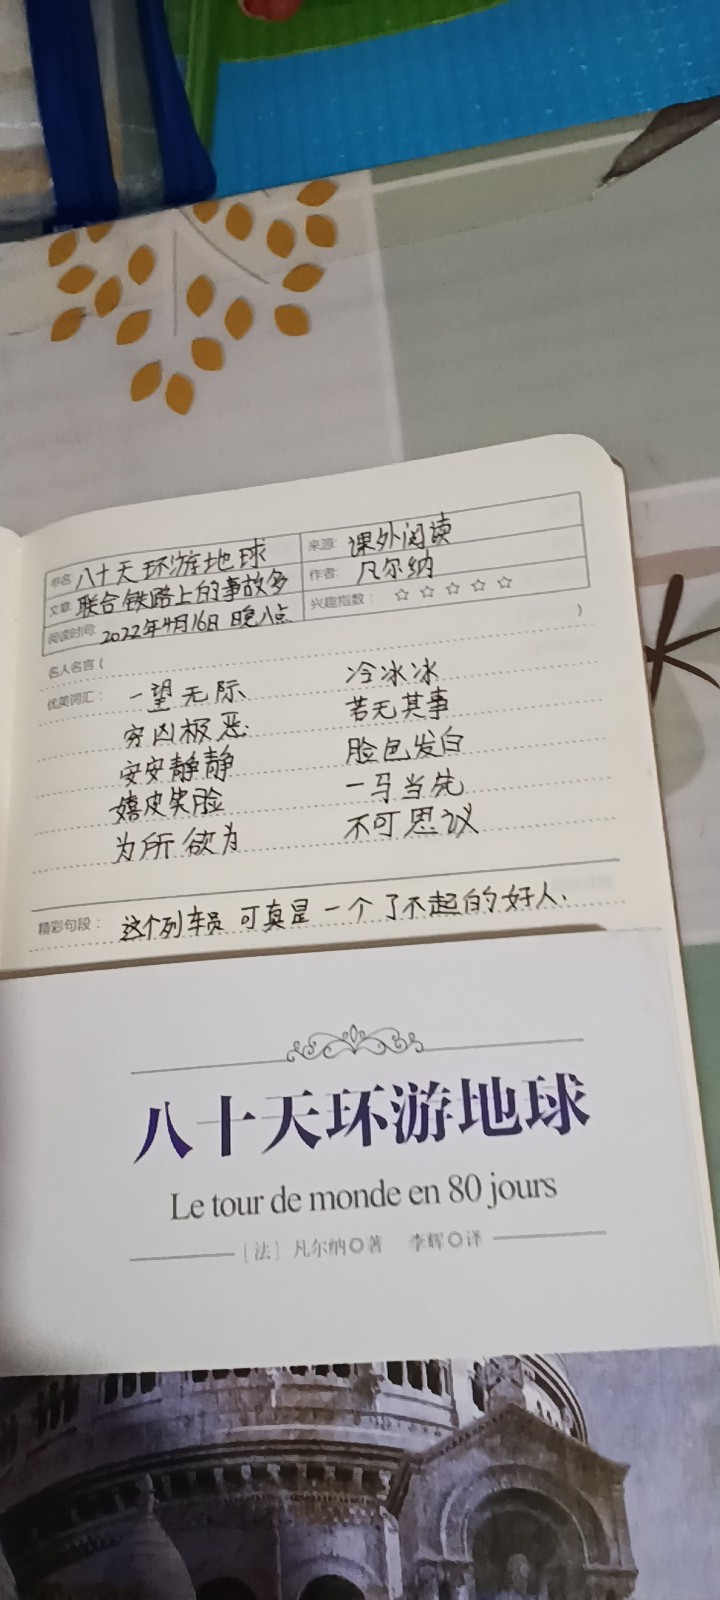 书名: 八十天环游地球 来源: 课外阅读
文章: 联合铁路上的事故多 作者: 凡尔纳
阅读时间: 2022年4月16日 晚八点 兴趣指数: ☆ ☆ ☆ ☆ ☆
名人名言 ( )
优美词汇: 一望无际 冷冰冰
穷凶极恶 若无其事
安安静静 脸色发白
嬉皮笑脸 一马当先
为所欲为 不可思议
精彩句段: 这个列车员可真是一个了不起的好人.
八十天环游地球
Le tour de monde en 80 jours
[法] 凡尔纳◎著 李辉◎译